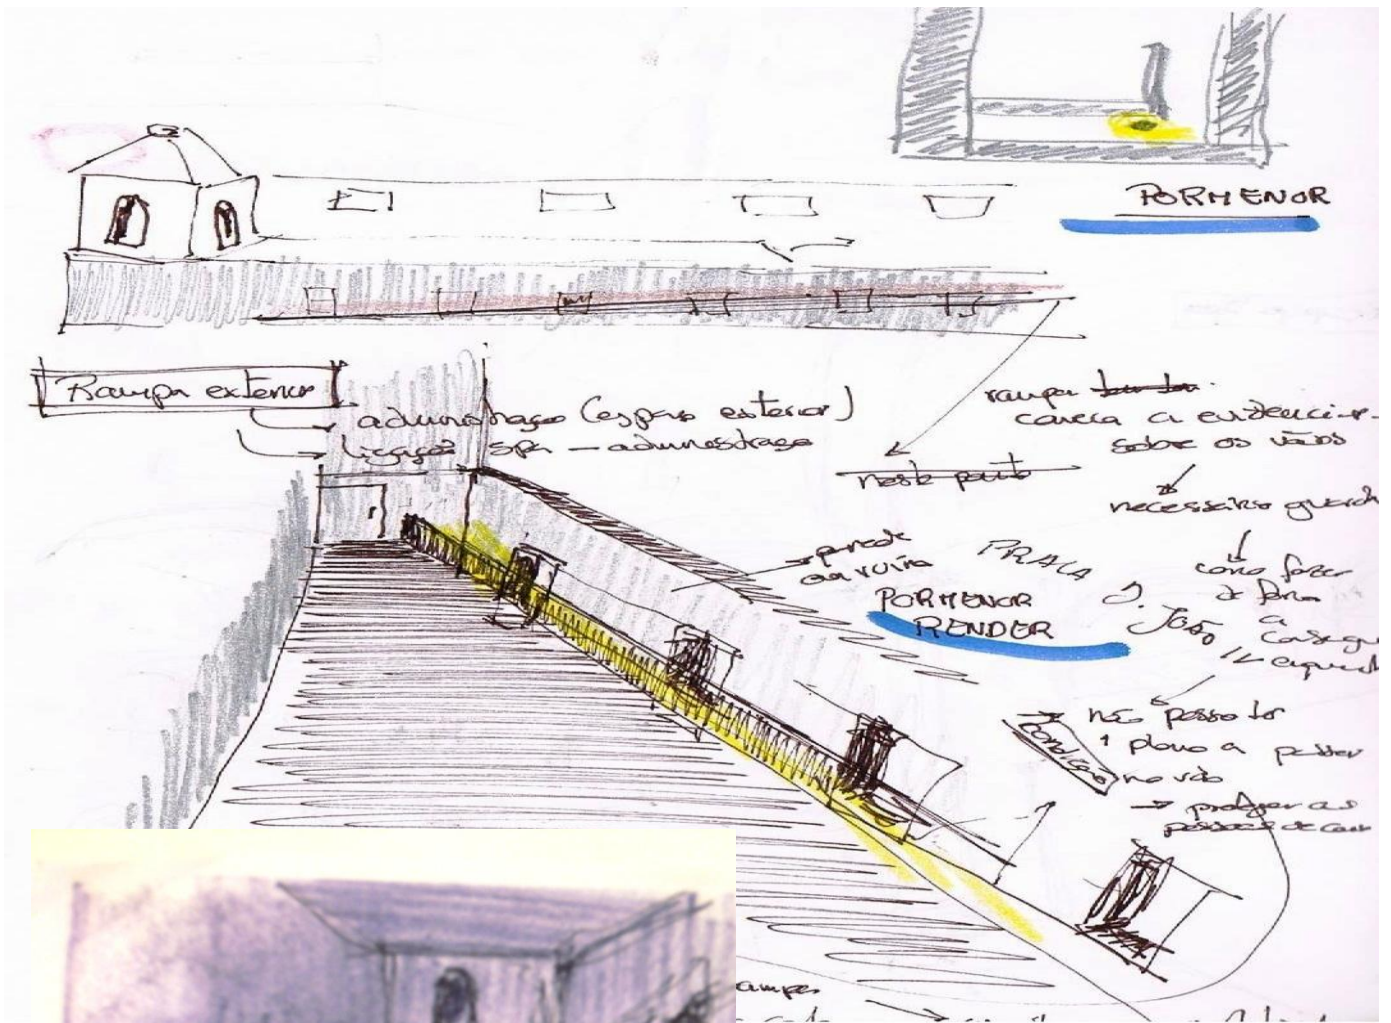 PORMENOR
Rampa exterior
administração (espaço exterior)
ligação spa – administração
rampa
começa a evidenciar-
sobre os vãos
neste ponto
necessário guarda
parede
em ruína
PRAÇA
D.
João II
PORMENOR
RENDER
como fazer
de forma
a
Condição
não posso ter
1 plano a passar
no vão
→ proteger as
pessoas de cair